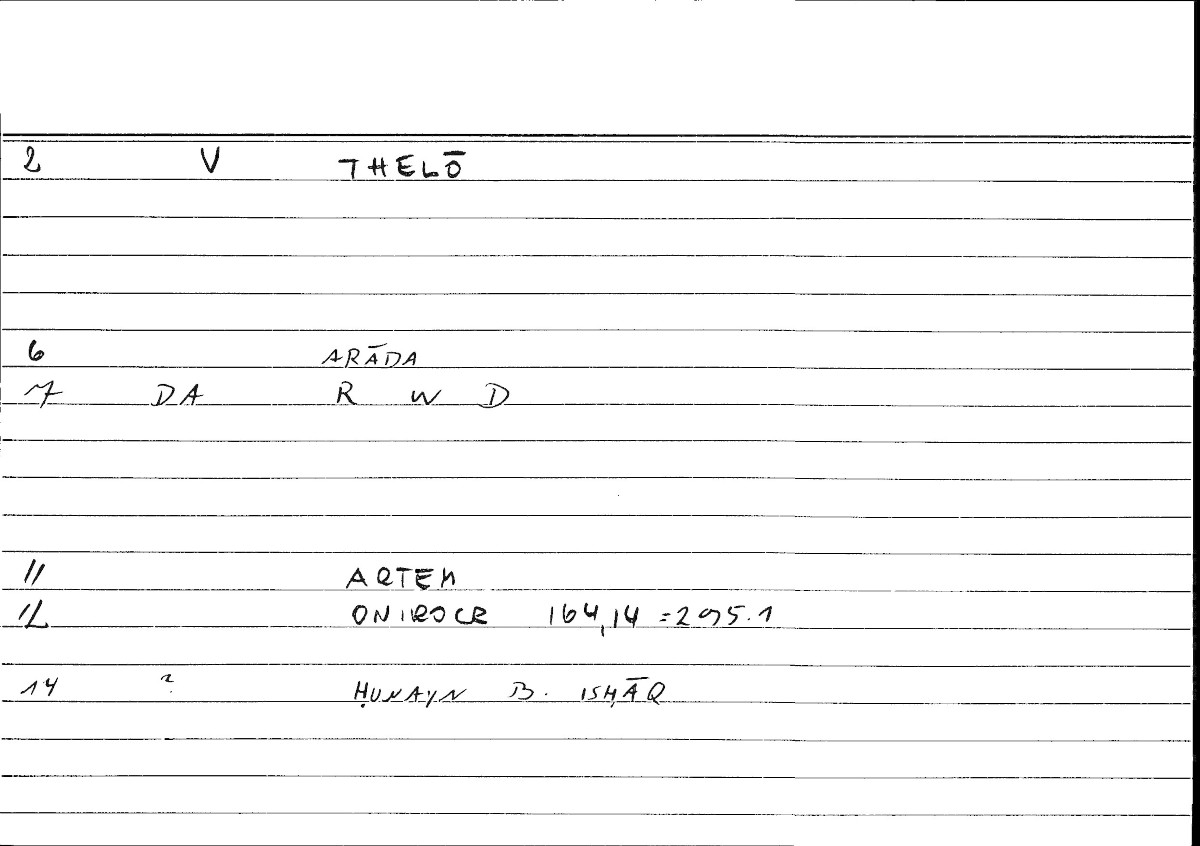 2 V THELŌ
6 ARĀDA
7 DA R W D
11 ARTEM
12 ONIROCR 164,14 = 295.1
14 ? ḤUNAYN B. ISḤĀQ